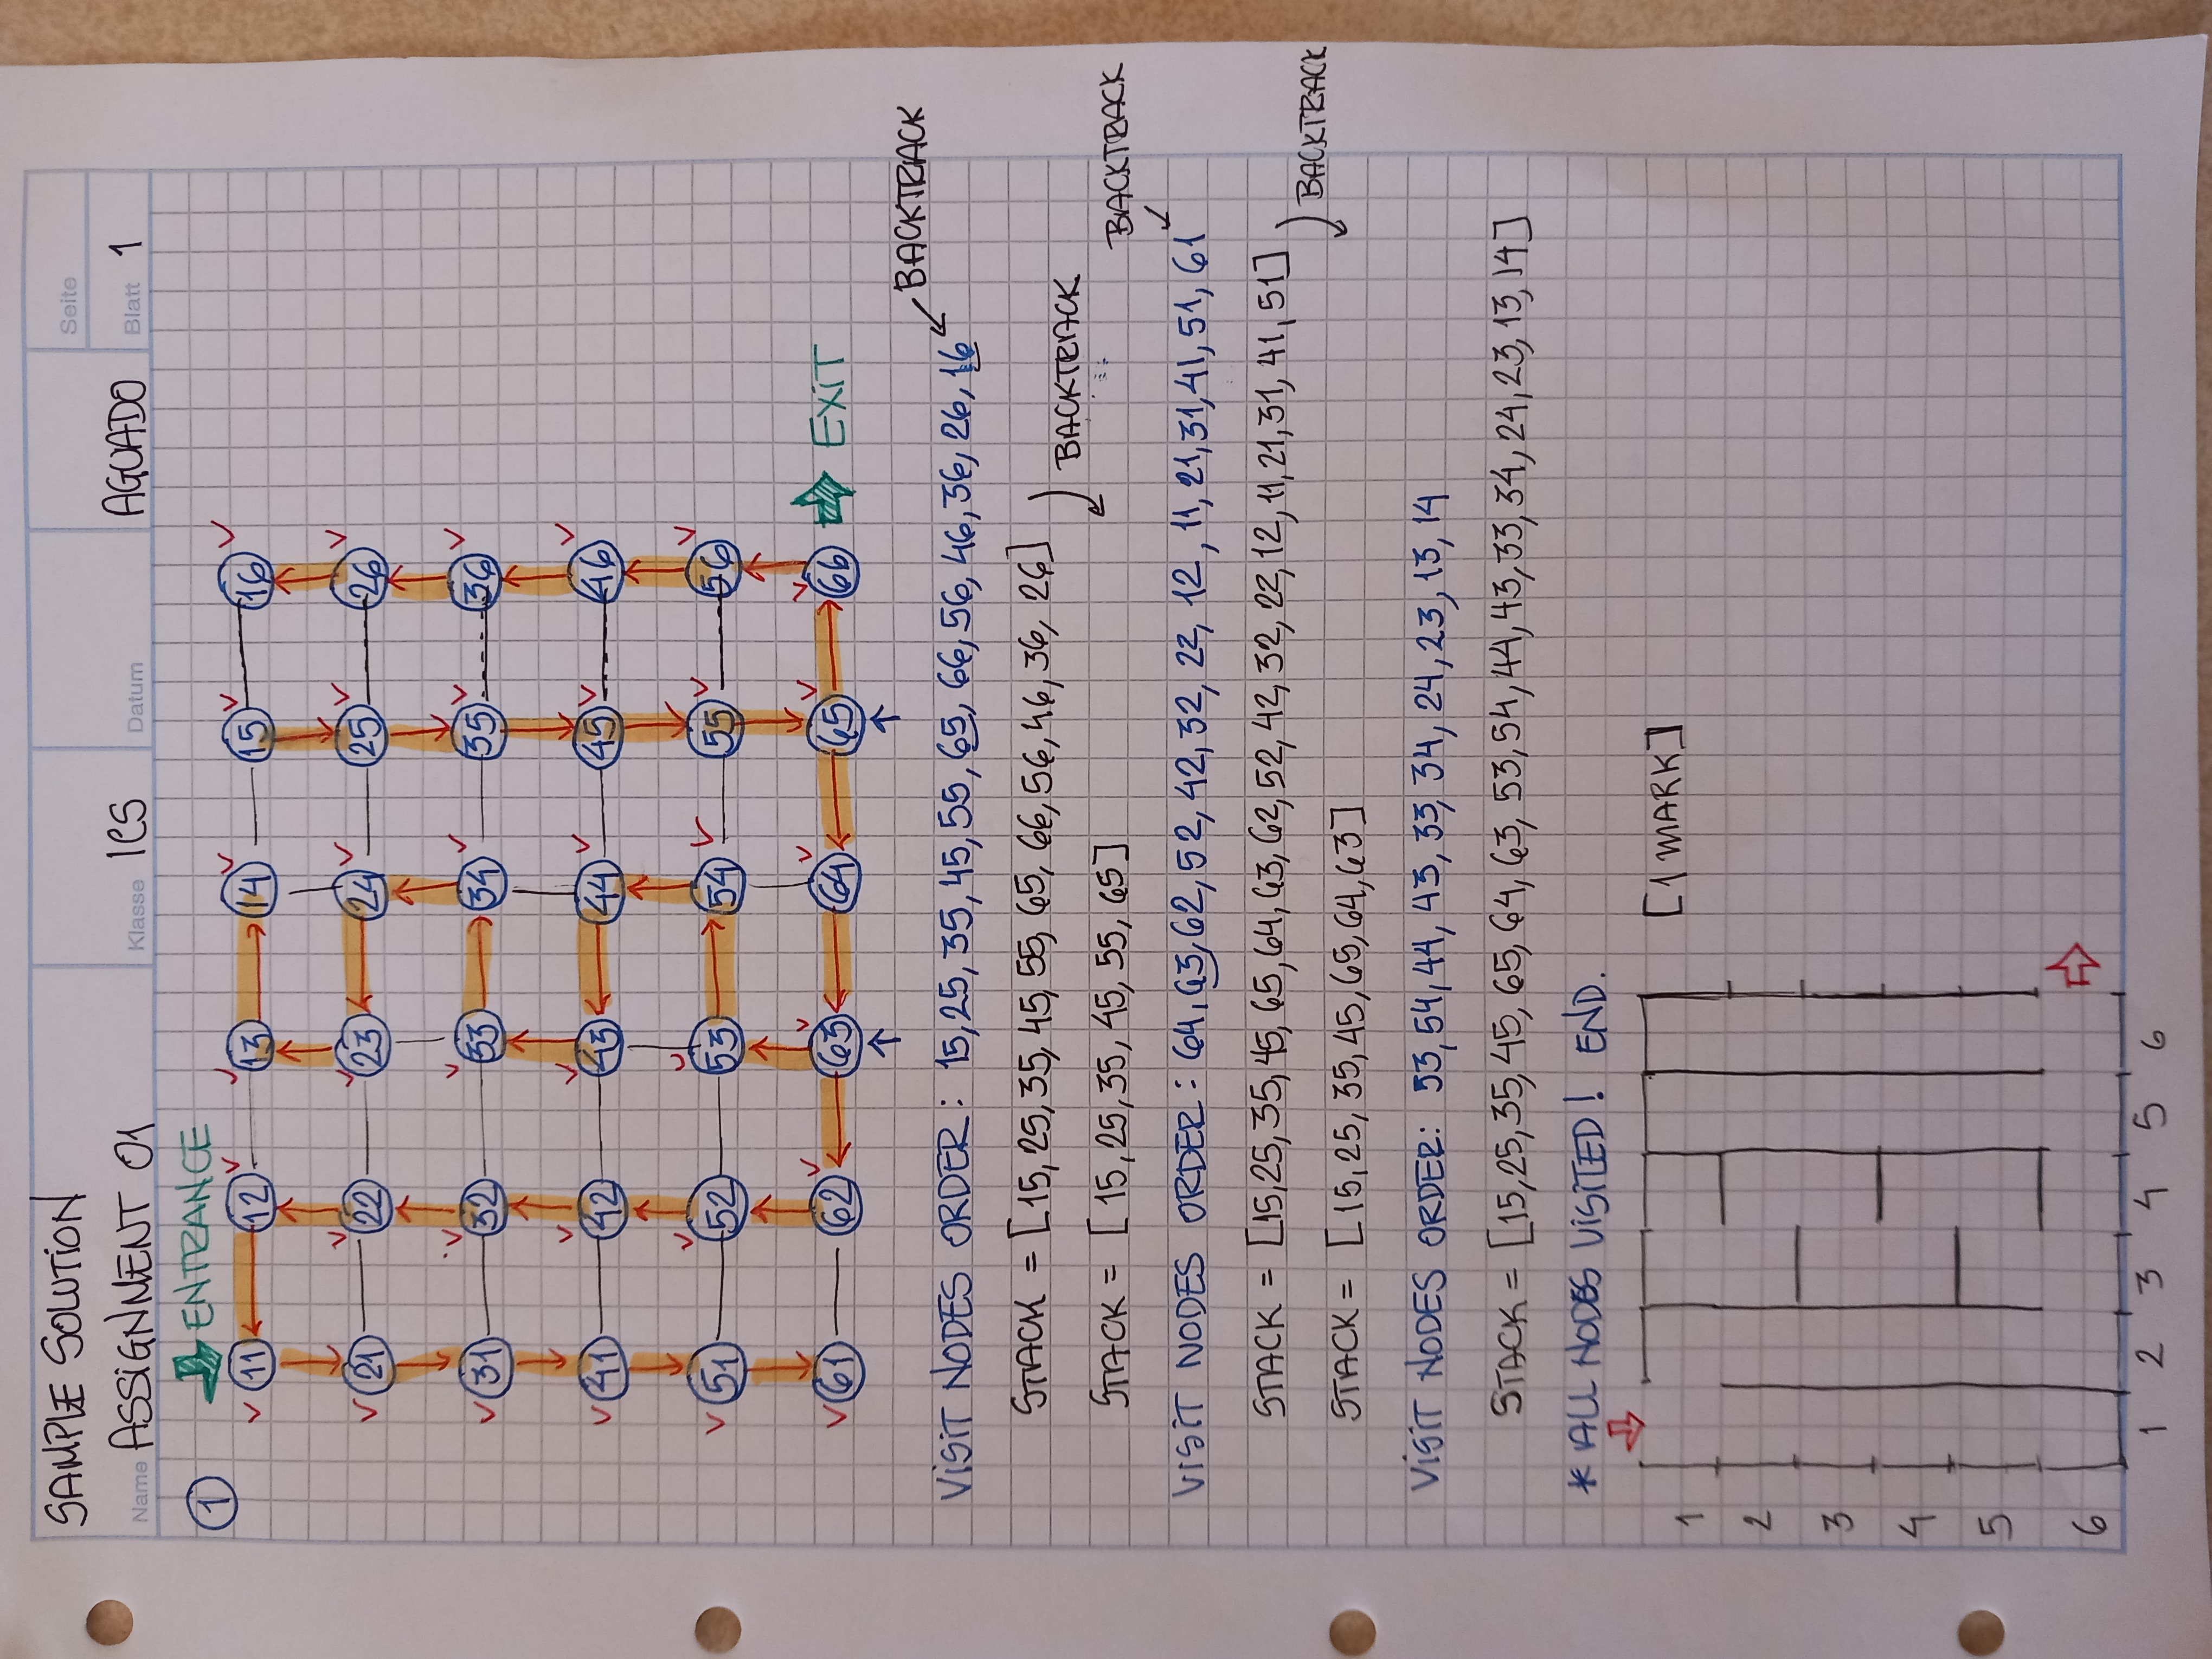 SAMPLE SOLUTION
Seite
Name ASSIGNMENT 01 Klasse ICS Datum AGUADO Blatt 1
1 ENTRANCE
11 12 13 14 15 16
21 22 23 24 25 26
31 32 33 34 35 36
41 42 43 44 45 46
51 52 53 54 55 56
61 62 63 64 65 66 EXIT
BACKTRACK
VISIT NODES ORDER: 15, 25, 35, 45, 55, 65, 66, 56, 46, 36, 26, 16
STACK = [15, 25, 35, 45, 55, 65, 66, 56, 46, 36, 26]
BACKTRACK
STACK = [15, 25, 35, 45, 55, 65]
BACKTRACK
VISIT NODES ORDER: 64, 63, 62, 52, 42, 32, 22, 12, 11, 21, 31, 41, 51, 61
STACK = [15, 25, 35, 45, 65, 64, 63, 62, 52, 42, 32, 22, 12, 11, 21, 31, 41, 51]
BACKTRACK
STACK = [15, 25, 35, 45, 65, 64, 63]
VISIT NODES ORDER: 53, 54, 44, 43, 33, 34, 24, 23, 13, 14
STACK = [15, 25, 35, 45, 65, 64, 63, 53, 54, 44, 43, 33, 34, 24, 23, 13, 14]
* ALL NODES VISITED! END.
[1 MARK]
1
2
3
4
5
6
1 2 3 4 5 6